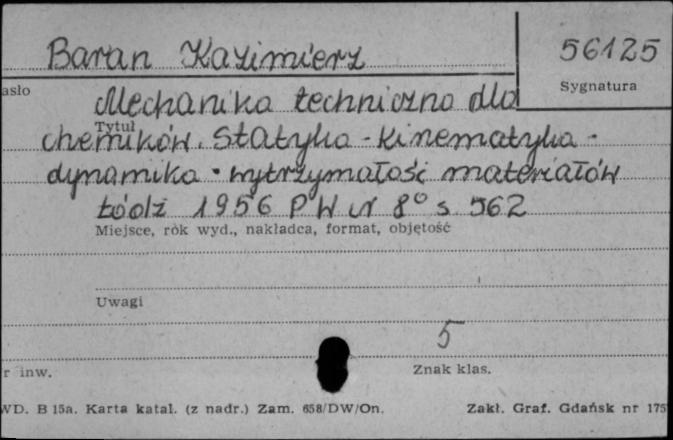 Baran Kazimierz
56125
asło
Sygnatura
Mechanika techniczna dla
Tytuł
chemików. Statyka - kinematyka -
dynamika - wytrzymałość materiałów
Łódź 1956 PWN 8° s. 562
Miejsce, rok wyd., nakładca, format, objętość
Uwagi
5
r inw.
Znak klas.
WD. B 15a. Karta katal. (z nadr.) Zam. 658/DW/On.
Zakł. Graf. Gdańsk nr 175